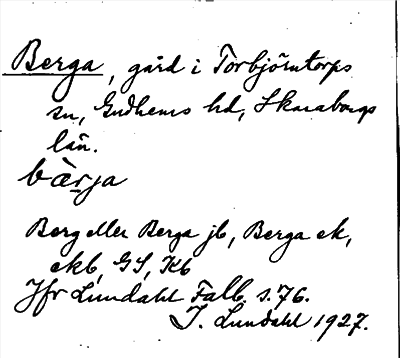 Berga, gård i Torbjörntorps
sn, Gudhems hd, Skaraborgs
län.
bær̠ja
Berg eller Berga jb, Berga ek,
ekb, GS, Kb
Jfr Lundahl Falb. s. 76.
I. Lundahl 1927.